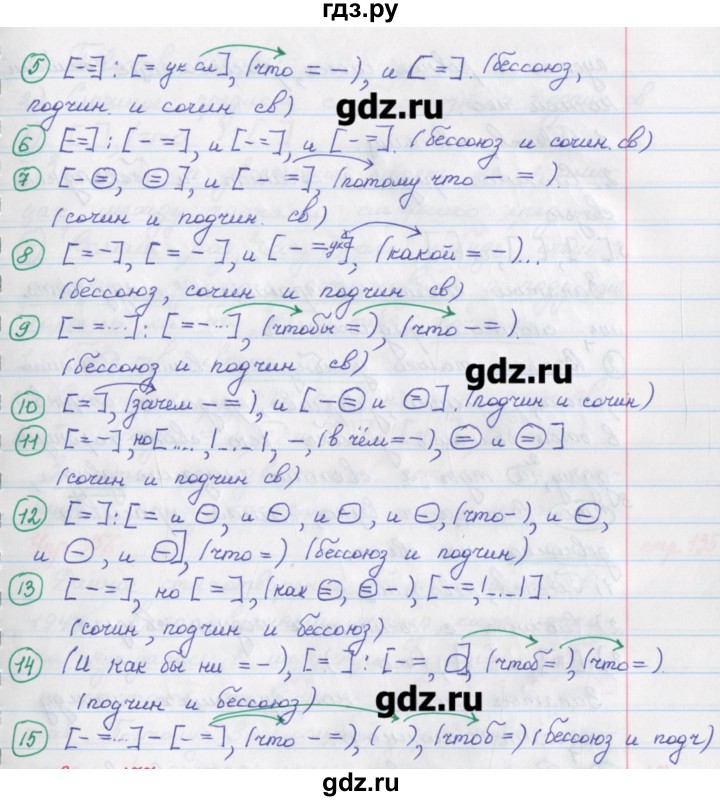 гдз.ру
5 [-=] : [= ук сл], (что = -), и [ =]. (бессоюз,
подчин и сочин св)
gdz.ru
6 [=] : [- =], и [-=], и [- =]. (бессоюз и сочин. св)
7 [-=, =], и [- =], (потому что - =).
(сочин и подчин св)
8 [= -], [= -], и [- = ук сл], (какой = -)...
(бессоюз, сочин и подчин св)
9 [- =...] : [=-...], (чтобы =), (что -=).
(бессоюз и подчин св)
gdz.ru
10 [=], (зачем - =), и [-= и =]. (подчин и сочин)
11 [= -], но [...., |_._|, -, (в чём = -), = и =]
(сочин и подчин св)
12 [=] : [= и -, и -, и -, и -, (что -), и -,
и -, и -], (что =). (бессоюз и подчин)
13 [-=], но [=], (как =, = -), [-=, |_._|].
(сочин, подчин и бессоюз)
14 (И как бы ни = -), [= ] : [-=, ], (чтоб = ), (что = ).
(подчин и бессоюз)
gdz.ru
15 [- =...] - [- =], (что - =), ( ), (чтоб =) (бессоюз и подч)
gdz.ru